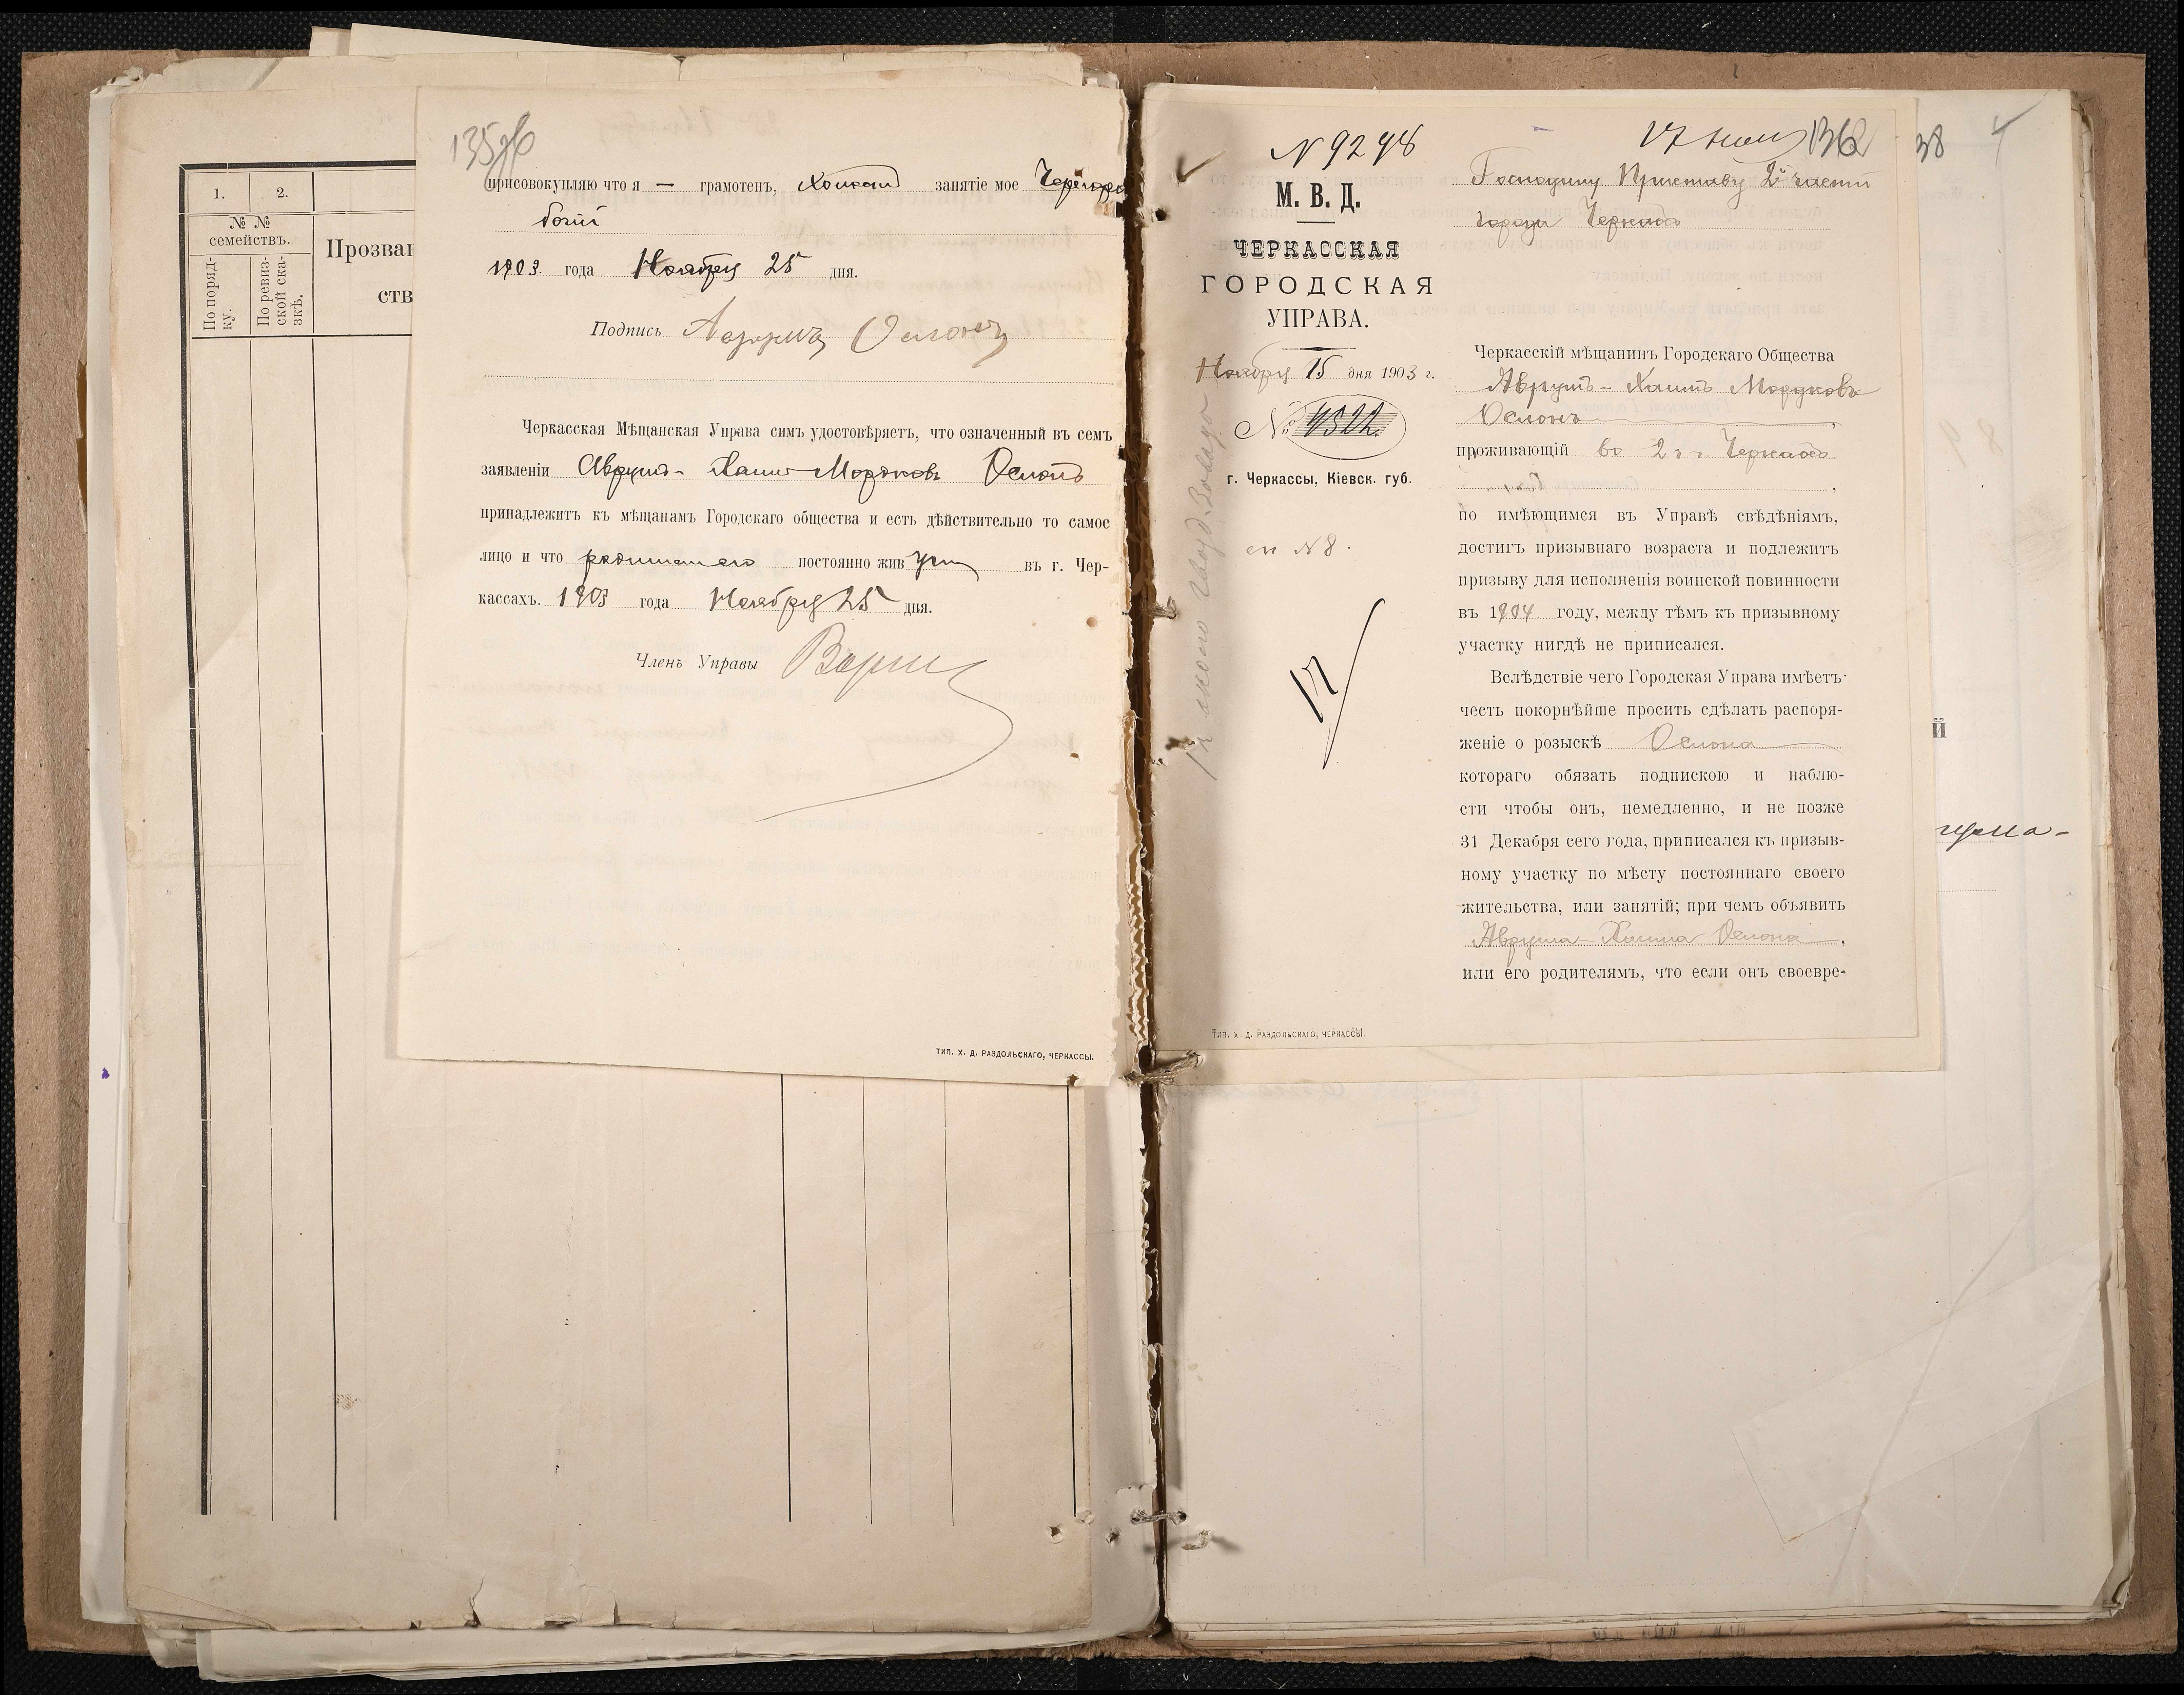 135об
1.
2.
№ №
семействъ.
По поряд-
ку.
По ревиз-
ской ска-
зкѣ.
Прозван
ств
присовокупляю что я — грамотенъ, холостъ занятіе мое Чернора-
бочій
1903 года Ноября 25 дня.
Подпись Осломъ
Черкасская Мѣщанская Управа симъ удостовѣряетъ, что означенный въ семъ
заявленіи Аврумъ-Хаимъ Мордковъ Ослонъ
принадлежитъ къ мѣщанамъ Городскаго общества и есть дѣйствительно то самое
лицо и что постоянно жив въ г. Чер-
кассахъ. 1903 года Ноября 25 дня.
Членъ Управы
ТИП. Х. Д. РАЗДОЛЬСКАГО, ЧЕРКАССЫ.
N 9298
М. В. Д.
ЧЕРКАССКАЯ
ГОРОДСКАЯ
УПРАВА.
Ноября 15 дня 1903 г.
№ 4522
г. Черкассы, Кіевск. губ.
N 8.
ТИП. Х. Д. РАЗДОЛЬСКАГО, ЧЕРКАССЫ.
17 136
Господину Приставу 2й части
города Черкассъ
Черкасскій мѣщанинъ Городскаго Общества
Аврумъ-Хаимъ Мордковъ
Ослонъ,
проживающій во 2 ч. г. Черкассъ
по имѣющимся въ Управѣ свѣдѣніямъ,
достигъ призывнаго возраста и подлежитъ
призыву для исполненія воинской повинности
въ 1904 году, между тѣмъ къ призывному
участку нигдѣ не приписался.
Вслѣдствіе чего Городская Управа имѣетъ
честь покорнѣйше просить сдѣлать распоря-
женіе о розыскѣ Ослона
котораго обязать подпискою и наблю-
сти чтобы онъ, немедленно, и не позже
31 Декабря сего года, приписался къ призыв-
ному участку по мѣсту постояннаго своего
жительства, или занятій; при чемъ объявить
Аврума-Хаима Ослона,
или его родителямъ, что если онъ своевре-
38
й